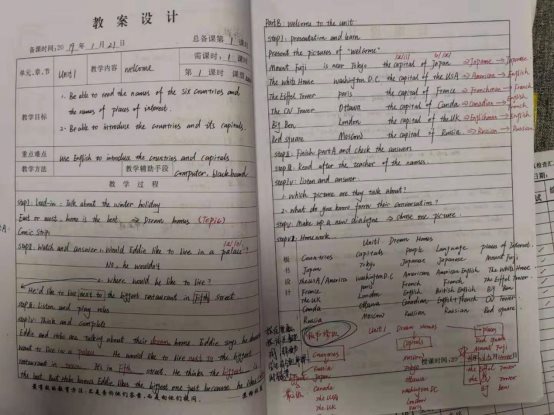 教案设计
总备课第1课时
备课时间:2019年1月21日
需课时:1课时
单元.章.节 Unit1 教学内容 welcome 第1课时
教学目标
1. Be able to read the names of the six countries and
the names of places of interest.
2. Be able to introduce the countries and its capitals.
重点难点 use English to introduce the countries and capitals
教学方法 教学辅助手段 computer, blackboard
教学过程
step1. Lead-in - Talk about the winter holiday
East or west, home is the best → Dream homes (Topic)
Comic strip
Watch and answer: Would Eddie like to live in a palace?
No, he wouldn't
2. Where would he like to live?
He'd like to live next to the biggest restaurant in Fifth street
Listen and play roles
Think and complete
Eddie and Hobo are talking about their dream homes. Eddie says he doesn't
want to live in a palace. He would like to live next to the biggest
restaurant in town. It's in fifth street. He thinks the biggest is
the best. But Hobo knows Eddie likes the biggest one just because
Part B: Welcome to the unit
step1: presentation and learn
Present the pictures of "welcome"
Mount Fuji is near Tokyo the capital of Japan → Japanese → Japanese
The White House Washington D.C. the capital of the USA → American → English
The Eiffel Tower Paris the capital of France → Frenchman → French
The CN Tower Ottawa the capital of Canada → Canadian → English French
Big Ben London the capital of the UK → Englishman → English
Red Square Moscow the capital of Russia → Russian → Russian
step II. Finish partA and check the answers
step III. Read after the teacher of the names
step IV. Listen and answer
1. Which picture are they talk about?
2. What do you know form their conversation?
step V. Make up a new dialogue → choose one picture
Homework
Unit1 Dream Homes
板书设计
Countries Capitals People Language places of interest
Japan Tokyo Japanese Japanese Mount Fuji
the USA/America Washington D.C. American American English The White House
France Paris French French The Eiffel Tower
the UK London English British English Big Ben
Canada Ottawa Canadian English/French CN Tower
Russia Moscow Russian Russian Red Square
Unit1 Dream Homes
Countries Capitals places
Russia
Japan
France
Canada
The USA
The UK
授课时间:20